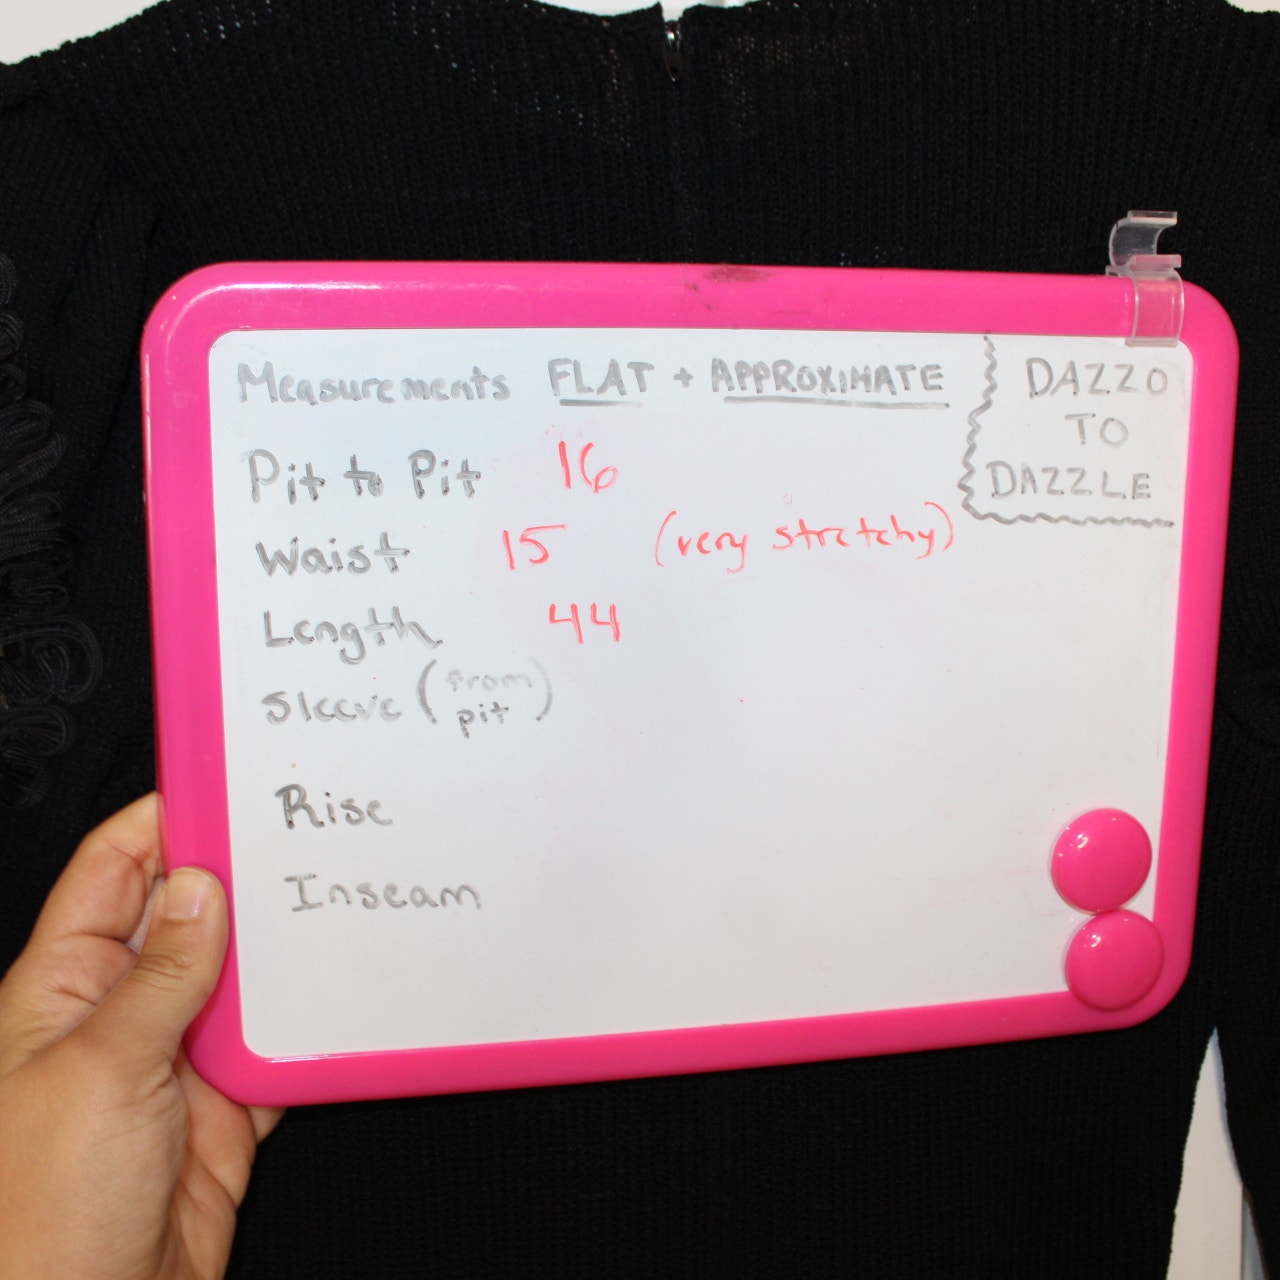 Measurements FLAT + APPROXIMATE
DAZZO
TO
DAZZLE
Pit to Pit 16
Waist 15 (very stretchy)
Length 44
Sleeve (from pit)
Rise
Inseam